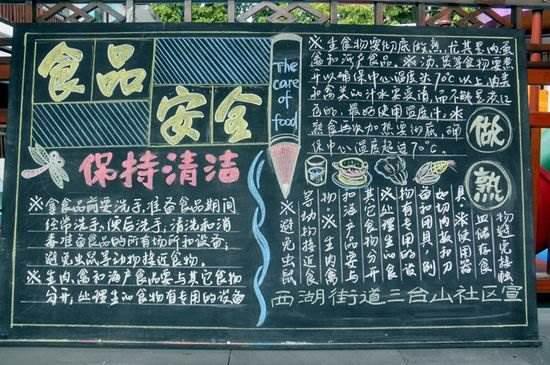 食品
安全
保持清洁
※拿食品前要洗手,准备食品期间
经常洗手,便后洗手,清洗和消
毒准备食品的所有场所和设备;
避免虫鼠等动物接近食物。
※生肉、禽和海产食品要与其它食物
分开,处理生的食物有专用的设备
The
care
of
food
※生食物要彻底的熟,尤其是肉蛋
禽和海产食品。※汤、煲等食物要煮
开以确保中心温度达70℃以上,肉类
和禽类的汁水要变清,而不能是淡红
色的,最好使用温度计。※
熟食再次加热要彻底,确
保中心温度超过70℃。
做
熟
物避免接触
血储存食
具※使用器
如切肉板和
备和用具,例
物有专用的设
分开,处理生的食
其它食物
和海产品要与
※生肉禽
等动物接近食
※避免虫鼠
西湖街道三台山社区宣